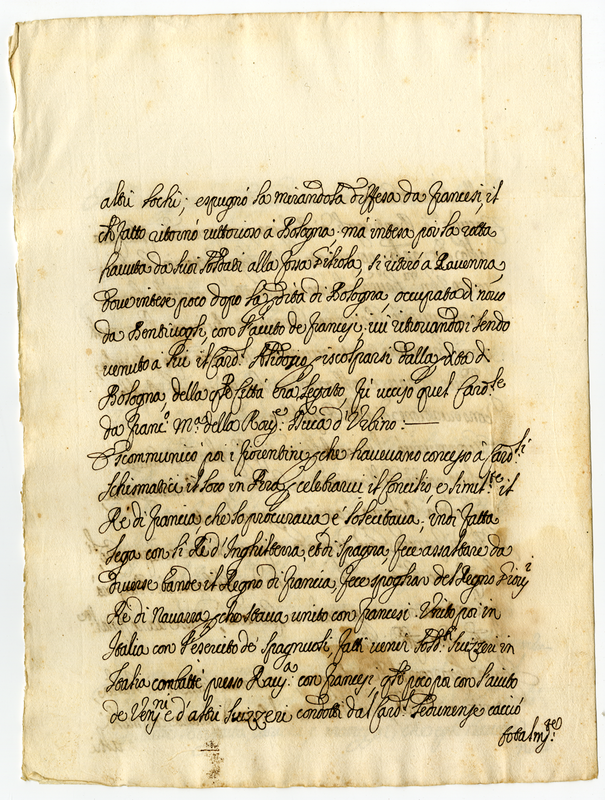 altri lochi; espugnò la mirandola diffesa da francesi, il
che fatto ritornò vittorioso à Bologna. mà intesa poi la rotta
havuta da suoi soldati alla fossa si ritirò à Ravenna,
dove intese poco dopo la p̱dita di Bologna occupata di nõuo
da Bentivogli, con l'aiuto de francesi. ivi ritrovandosi sendo
venuto à lui il Card.l Alidosio p̱ iscolparsi dalla p̱dita di
Bologna, della q̃le Città era Legato, fù ucciso quel Card.le
da Franc.o M.a della Rov.e Duca d'Urbino: —
Scommunicò poi i fiorentini p̱che havevano concesso à Card.li
Schismatici il loco in Pisa p̱ celebrarvi il Concilio, e simil.te il
Rè di francia che lo procurava e sollecitava, indi fatta
lega con li Rè d'Inghilterra, et di Spagna, fece assaltare da
diverse bande il Regno di francia, fece spogliar del Regno Giov.i
Rè di Navarra p̱che stava unito con francesi. Unito poi in
Italia con l'esercito de spagnuoli, fatti venir sold.ti suizzeri in
Italia combattè presso Rav.a con francesi q̃li poco poi con l'aiuto
de Ven.ni e d'altri Suizzeri condotti dal Card.l Sedunense cacciò
totalm.te